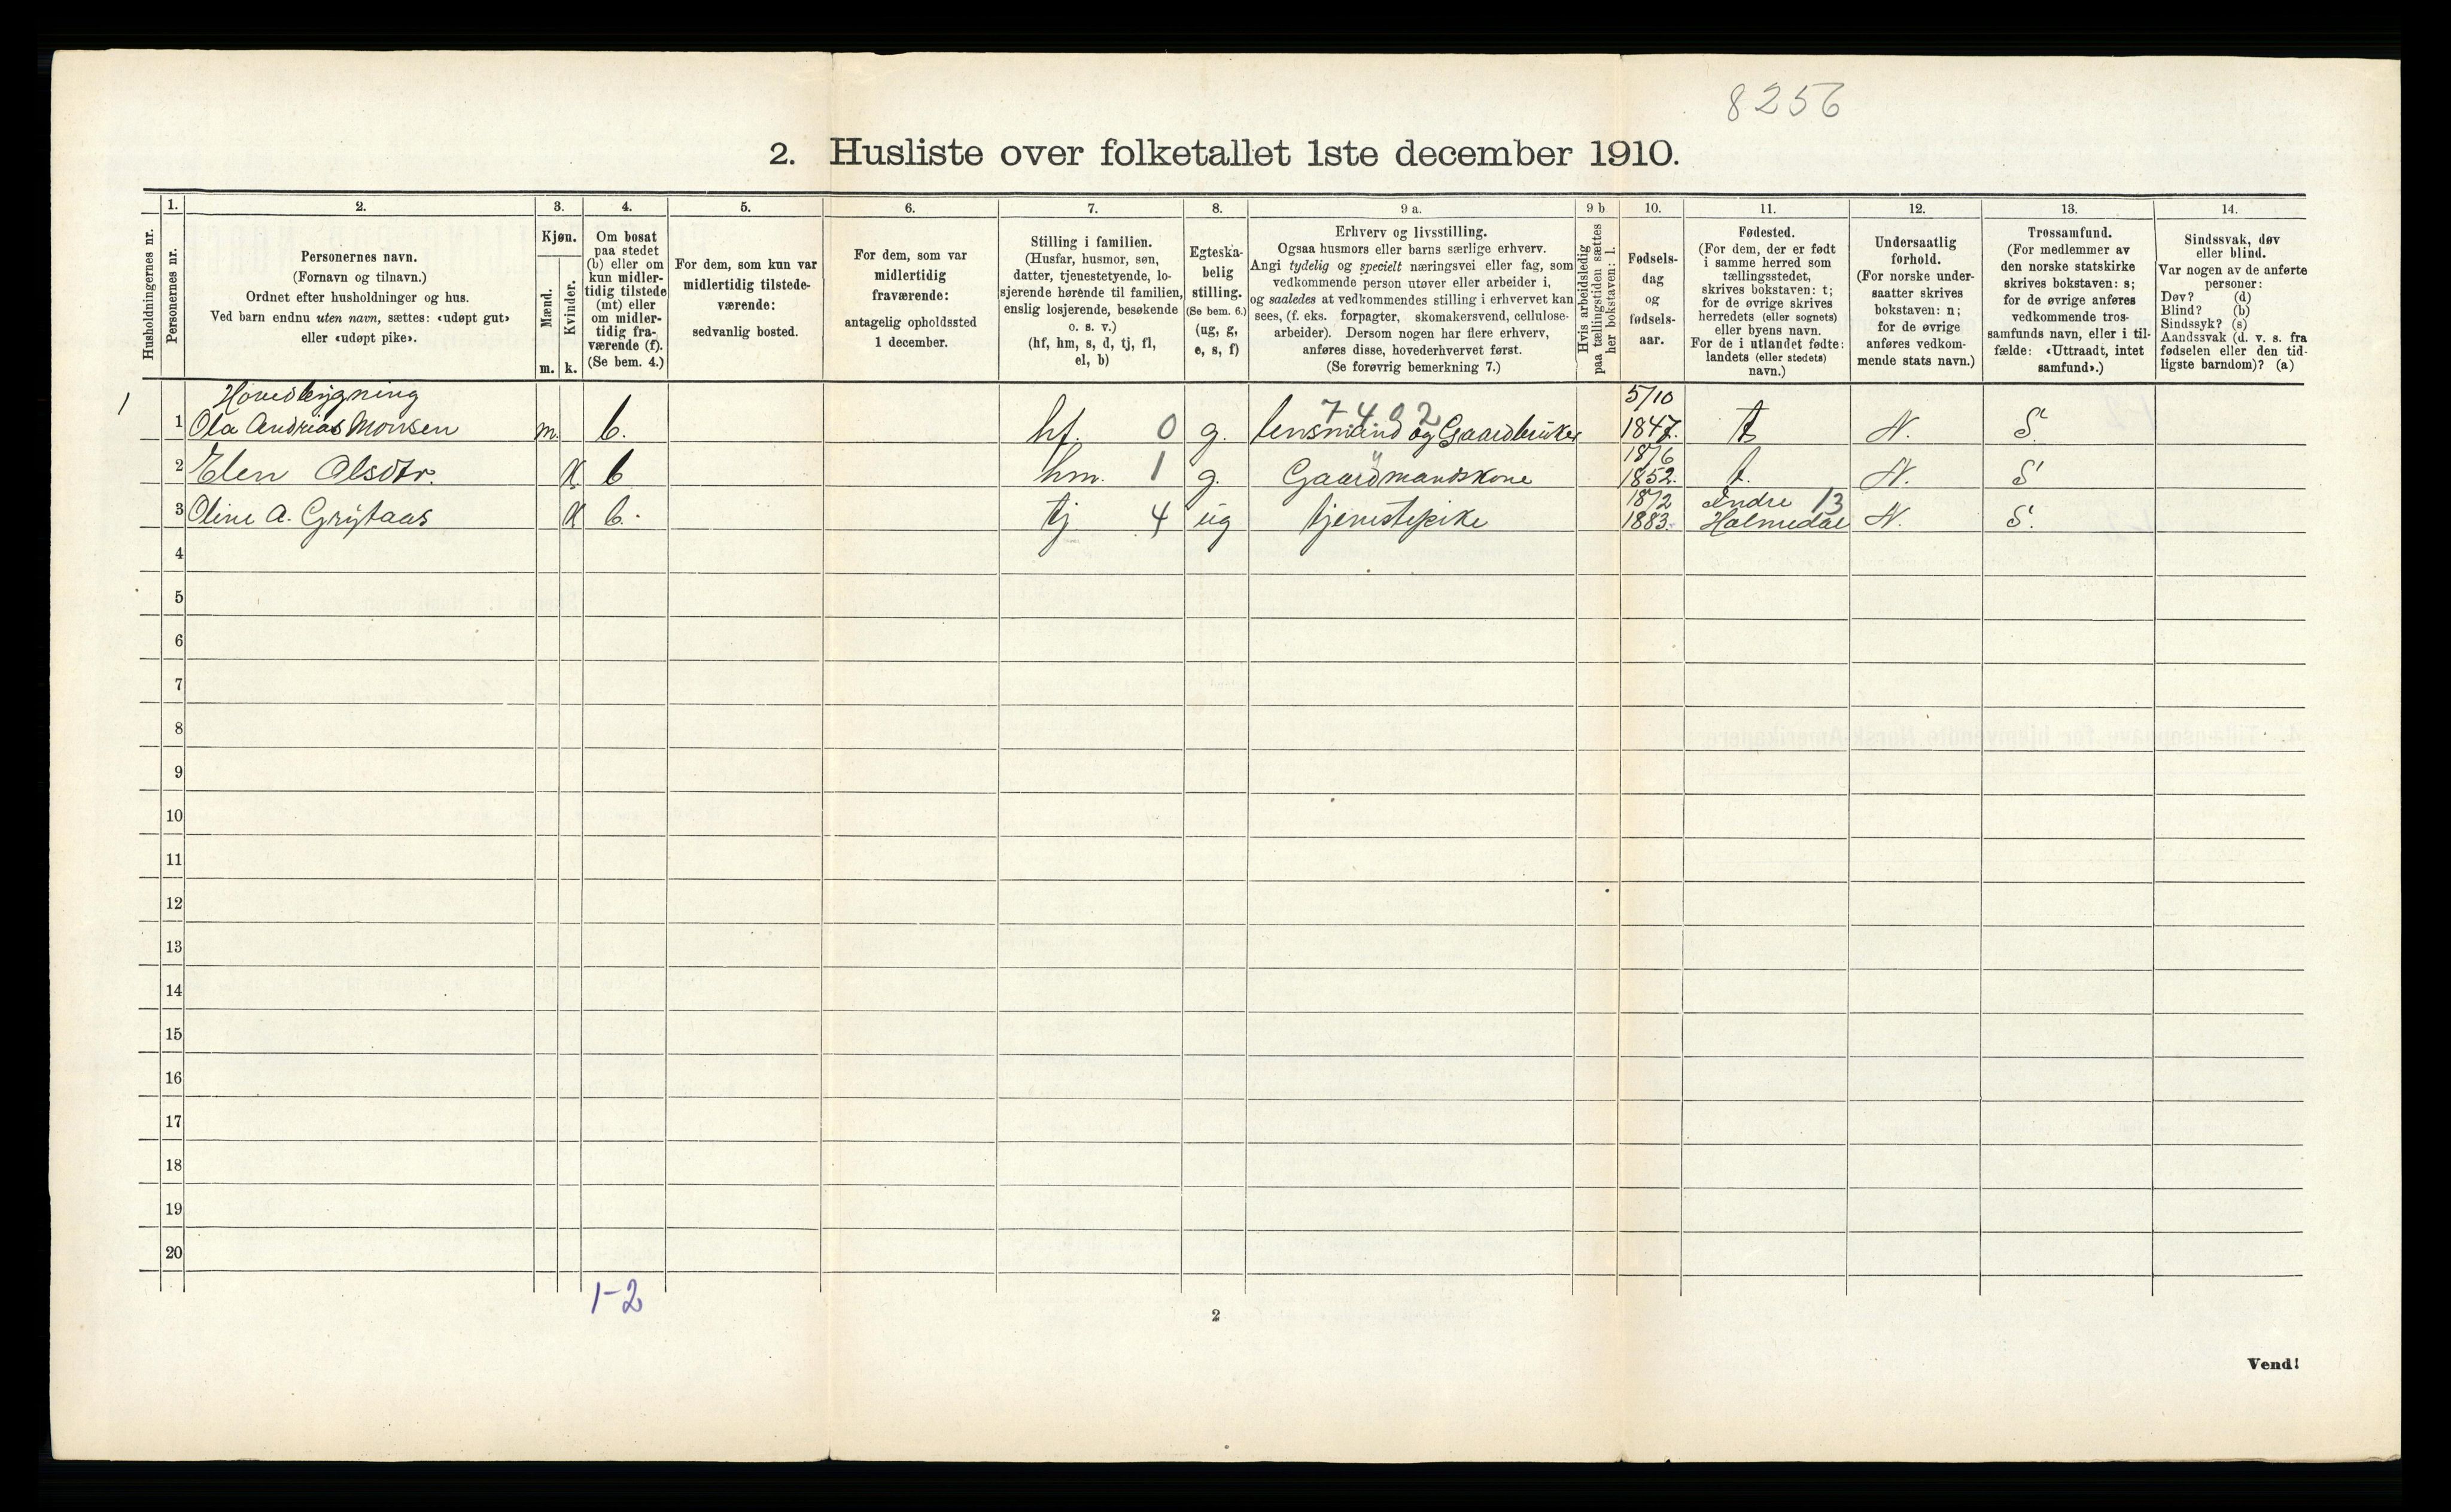 8256
2. Husliste over folketallet 1ste december 1910.
Husholdningernes nr.
1.
Personernes nr.
2.
Personernes navn.
(Fornavn og tilnavn.)
Ordnet efter husholdninger og hus.
Ved barn endnu uten navn, sættes: «udøpt gut»
eller «udøpt pike».
3.
Kjøn.
Mænd.
Kvinder.
m. k.
4.
Om bosat
paa stedet
(b) eller om
kun midler-
tidig tilstede
(mt) eller
om midler-
tidig fra-
værende (f).
(Se bem. 4.)
5.
For dem, som kun var
midlertidig tilstede-
værende:
sedvanlig bosted.
6.
For dem, som var
midlertidig
fraværende:
antagelig opholdssted
1 december.
7.
Stilling i familien.
(Husfar, husmor, søn,
datter, tjenestetyende, lo-
sjerende hørende til familien,
enslig losjerende, besøkende
o. s. v.)
(hf, hm, s, d, tj, fl,
el, b)
8.
Egteska-
belig
stilling.
(Se bem. 6.)
(ug, g,
e, s, f)
9 a.
Erhverv og livsstilling.
Ogsaa husmors eller barns særlige erhverv.
Angi tydelig og specielt næringsvei eller fag, som
vedkommende person utøver eller arbeider i,
og saaledes at vedkommendes stilling i erhvervet kan
sees, (f. eks. forpagter, skomakersvend, cellulose-
arbeider). Dersom nogen har flere erhverv,
anføres disse, hovederhvervet først.
(Se forøvrig bemerkning 7.)
9 b
Hvis arbeidsledig
paa tællingstiden sættes
her bokstaven: l.
10.
Fødsels-
dag
og
fødsels-
aar.
11.
Fødested.
(For dem, der er født
i samme herred som
tællingsstedet,
skrives bokstaven: t;
for de øvrige skrives
herredets (eller sognets)
eller byens navn.
For de i utlandet fødte:
landets (eller stedets)
navn.)
12.
Undersaatlig
forhold.
(For norske under-
saatter skrives
bokstaven: n;
for de øvrige
anføres vedkom-
mende stats navn.)
13.
Trossamfund.
(For medlemmer av
den norske statskirke
skrives bokstaven: s;
for de øvrige anføres
vedkommende tros-
samfunds navn, eller i til-
fælde: «Uttraadt, intet
samfund».)
14.
Sindssvak, døv
eller blind.
Var nogen av de anførte
personer:
Døv? (d)
Blind? (b)
Sindssyk? (s)
Aandssvak (d. v. s. fra
fødselen eller den tid-
ligste barndom)? (a)
Hovedbygning
1 1 Ola Andrias Monsen m. b. hf. 0 g. 7402 lensmand og Gaardbruker 5/10 1847. t N. S.
2 Elen Olsdtr. k b hm. 1 g. Gaardmandskone 18/6 1852. t. N. S
3 Oline A. Grytaas k b. tj 4 ug tjenestepike 18/2 1883. Indre Holmedal 13 N. S.
4
5
6
7
8
9
10
11
12
13
14
15
16
17
18
19
20
1-2
2
Vend!